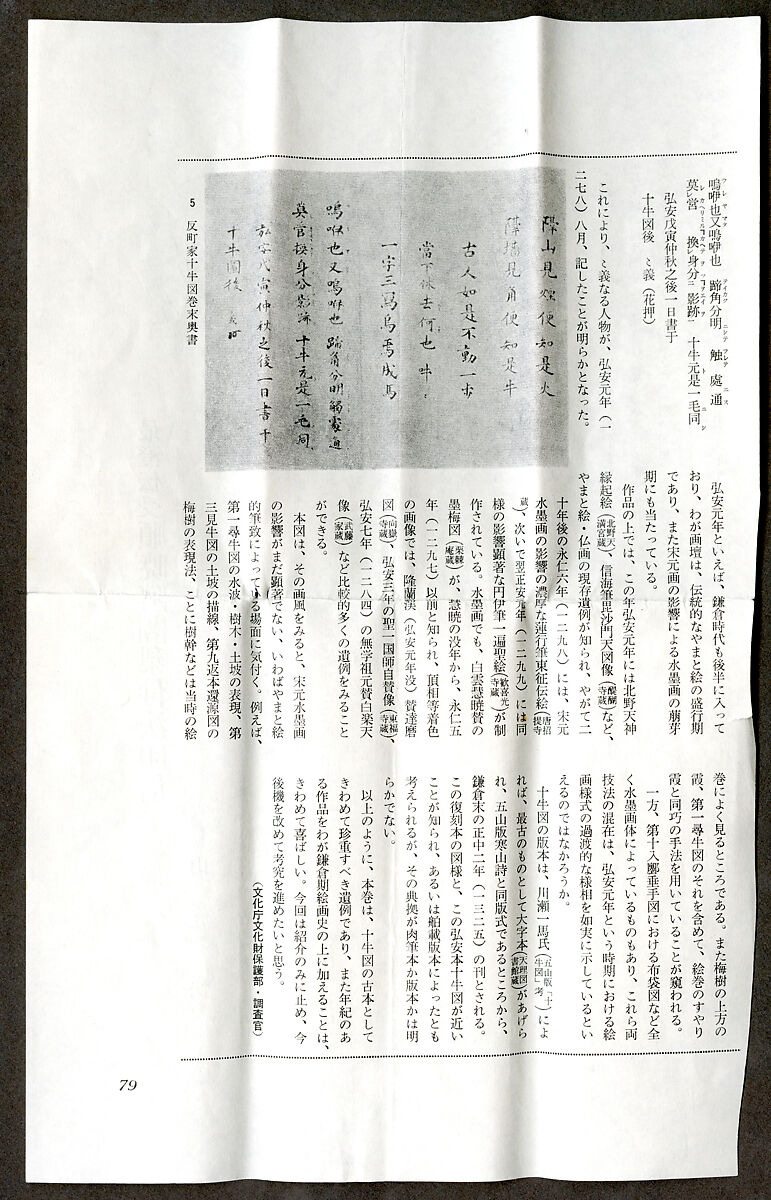 嗚咿也又嗚咿也 蹄角分明 触處通
莫レ営 換レ身分ニ影跡一 十牛元是一毛同
弘安戊寅仲秋之後一日書于
十牛図後 ミ義(花押)
これにより、ミ義なる人物が、弘安元年(一
二七八)八月、記したことが明らかとなった。
隔山見煙便知是火
隔墻見角便知是牛
古人如是不動一歩
當下休去何也 咄ミ
一字三寫烏焉成馬
嗚咿也又嗚咿也 蹄角分明觸處通
莫官換身分影跡 十牛元是一毛同
弘安戊寅仲秋之後一日書于
十牛圖後
5 反町家十牛図巻末奥書
弘安元年といえば、鎌倉時代も後半に入って
おり、わが画壇は、伝統的なやまと絵の盛行期
であり、また宋元画の影響による水墨画の萠芽
期にも当たっている。
作品の上では、この年弘安元年には北野天神
縁起絵(北野天満宮蔵)、信海筆毘沙門天図像(醍醐寺蔵)など、
やまと絵・仏画の現存遺例が知られ、やがて二
十年後の永仁六年(一二九八)には、宋元
水墨画の影響の濃厚な蓮行筆東征伝絵(唐招提寺
蔵)、次いで翌正安元年(一二九九)には同
様の影響顕著な円伊筆一遍聖絵(歓喜光寺蔵)が制
作されている。水墨画でも、白雲慧暁賛の
墨梅図(栗棘庵蔵)が、慧暁の没年から、永仁五
年(一二九七)以前と知られ、頂相等着色
の画像では、隆蘭渓(弘安元年没)賛達磨
図(向嶽寺蔵)、弘安三年の聖一国師自賛像(東福寺蔵)、
弘安七年(一二八四)の無学祖元賛白楽天
像(武藤家蔵)など比較的多くの遺例をみること
ができる。
本図は、その画風をみると、宋元水墨画
の影響がまだ顕著でない、いわばやまと絵
的筆致によっている場面に気付く。例えば、
第一尋牛図の水波・樹木・土坡の表現、第
三見牛図の土坡の描線、第九返本還源図の
梅樹の表現法、ことに樹幹などは当時の絵
巻によく見るところである。また梅樹の上方の
霞、第一尋牛図のそれを含めて、絵巻のすやり
霞と同巧の手法を用いていることが窺われる。
一方、第十入鄽垂手図における布袋図など全
く水墨画体によっているものもあり、これら両
技法の混在は、弘安元年という時期における絵
画様式の過渡的な様相を如実に示しているとい
えるのではなかろうか。
十牛図の版本は、川瀬一馬氏(「五山版「十牛図」考」)によ
れば、最古のものとして大字本(天理図書館蔵)があげら
れ、五山版寒山詩と同版式であるところから、
鎌倉末の正中二年(一三二五)の刊とされる。
この復刻本の図様と、この弘安本十牛図が近い
ことが知られ、あるいは舶載版本によったとも
考えられるが、その典拠が肉筆本か版本かは明
らかでない。
以上のように、本巻は、十牛図の古本として
きわめて珍重すべき遺例であり、また年紀のあ
る作品をわが鎌倉期絵画史の上に加えることは、
きわめて喜ばしい。今回は紹介のみに止め、今
後機を改めて考究を進めたいと思う。
(文化庁文化財保護部・調査官)
79